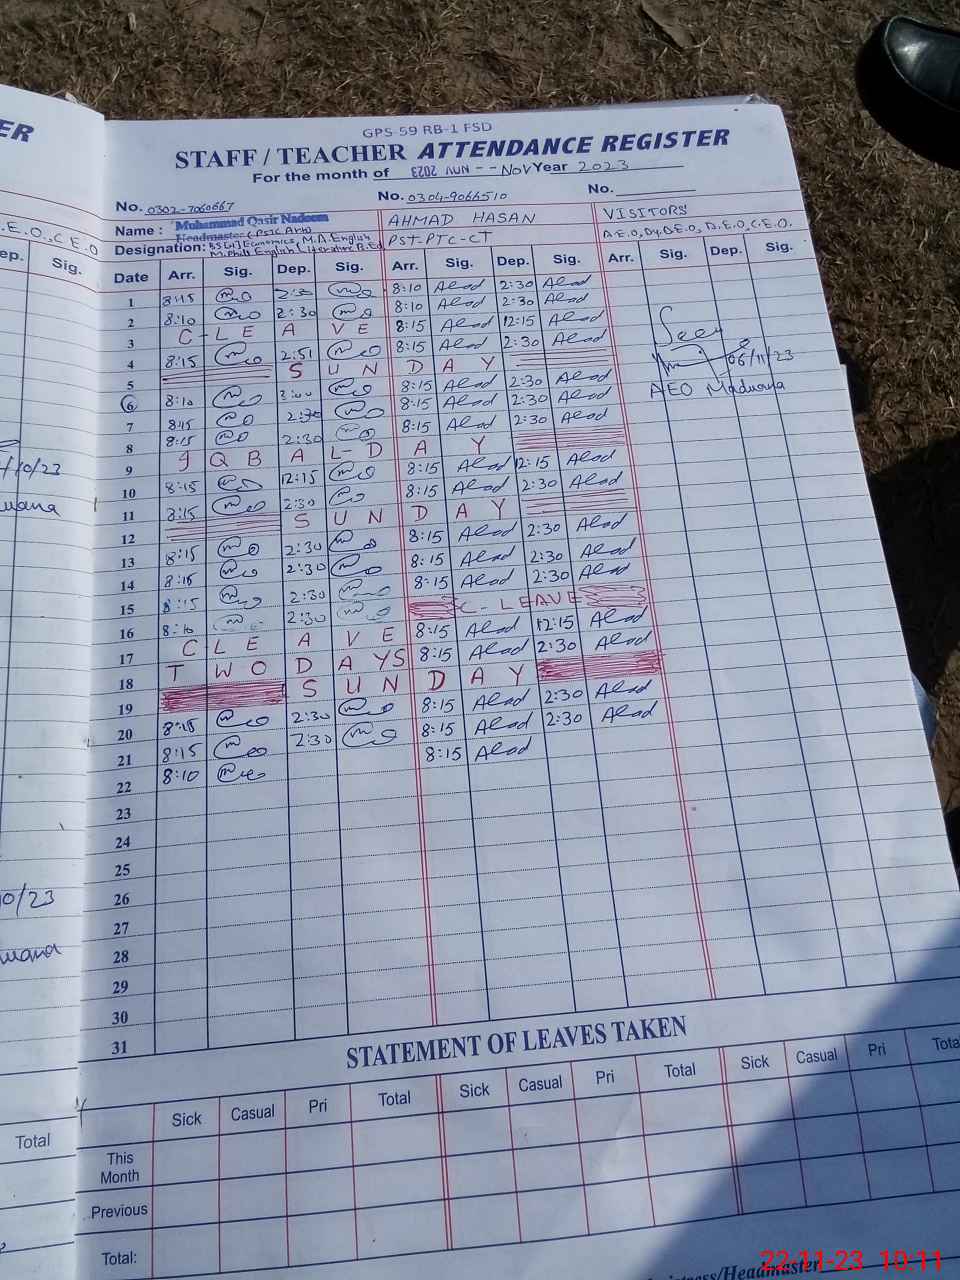 ER
GPS-59 RB-1 FSD
STAFF / TEACHER ATTENDANCE REGISTER
For the month of NOV 2023 -- Nov Year 2023
No. 0302-7060667 No. 0304-9066510 No.
Name : Muhammad Qasir Nadeem AHMAD HASAN VISITORS
Headmaster (PSTC Arts)
Designation: BS (H) Economics, M.A. English PST-PTC-CT A.E.O, Dy.D.E.O, D.E.O, C.E.O.
M.Phil English Literature B.Ed
.E.O., C E O
ep. Sig.
Date Arr. Sig. Dep. Sig. Arr. Sig. Dep. Sig. Arr. Sig. Dep. Sig.
1 8:15 8:10 Alad 2:30 Alad
2 8:10 2:30 8:10 Alad 2:30 Alad
3 C-LEAVE 8:15 Alad 12:15 Alad
4 8:15 2:51 8:15 Alad 2:30 Alad
5 SUNDAY
6 8:10 3:00 8:15 Alad 2:30 Alad
7 8:15 2:30 8:15 Alad 2:30 Alad
8 8:15 2:30 8:15 Alad 2:30 Alad
9 IQBAL-DAY
10 8:15 12:15 8:15 Alad 12:15 Alad
11 8:15 2:30 8:15 Alad 2:30 Alad
12 SUNDAY
13 8:15 2:30 8:15 Alad 2:30 Alad
14 8:15 2:30 8:15 Alad 2:30 Alad
15 8:15 2:30 8:15 Alad 2:30 Alad
16 8:10 2:30 C-LEAVE
17 C LEAVE 8:15 Alad 12:15 Alad
18 TWO DAYS 8:15 Alad 2:30 Alad
19 SUNDAY
20 8:15 2:30 8:15 Alad 2:30 Alad
21 8:15 2:30 8:15 Alad 2:30 Alad
22 8:10 8:15 Alad
23
24
25
26
27
28
29
30
31
Seen
06/11/23
AEO Maduana
/10/23
uana
0/23
uana
STATEMENT OF LEAVES TAKEN
Sick Casual Pri Total Sick Casual Pri Total Sick Casual Pri Tota
This
Month
Previous
Total:
Total
/Headmaster
22-11-23 10:11